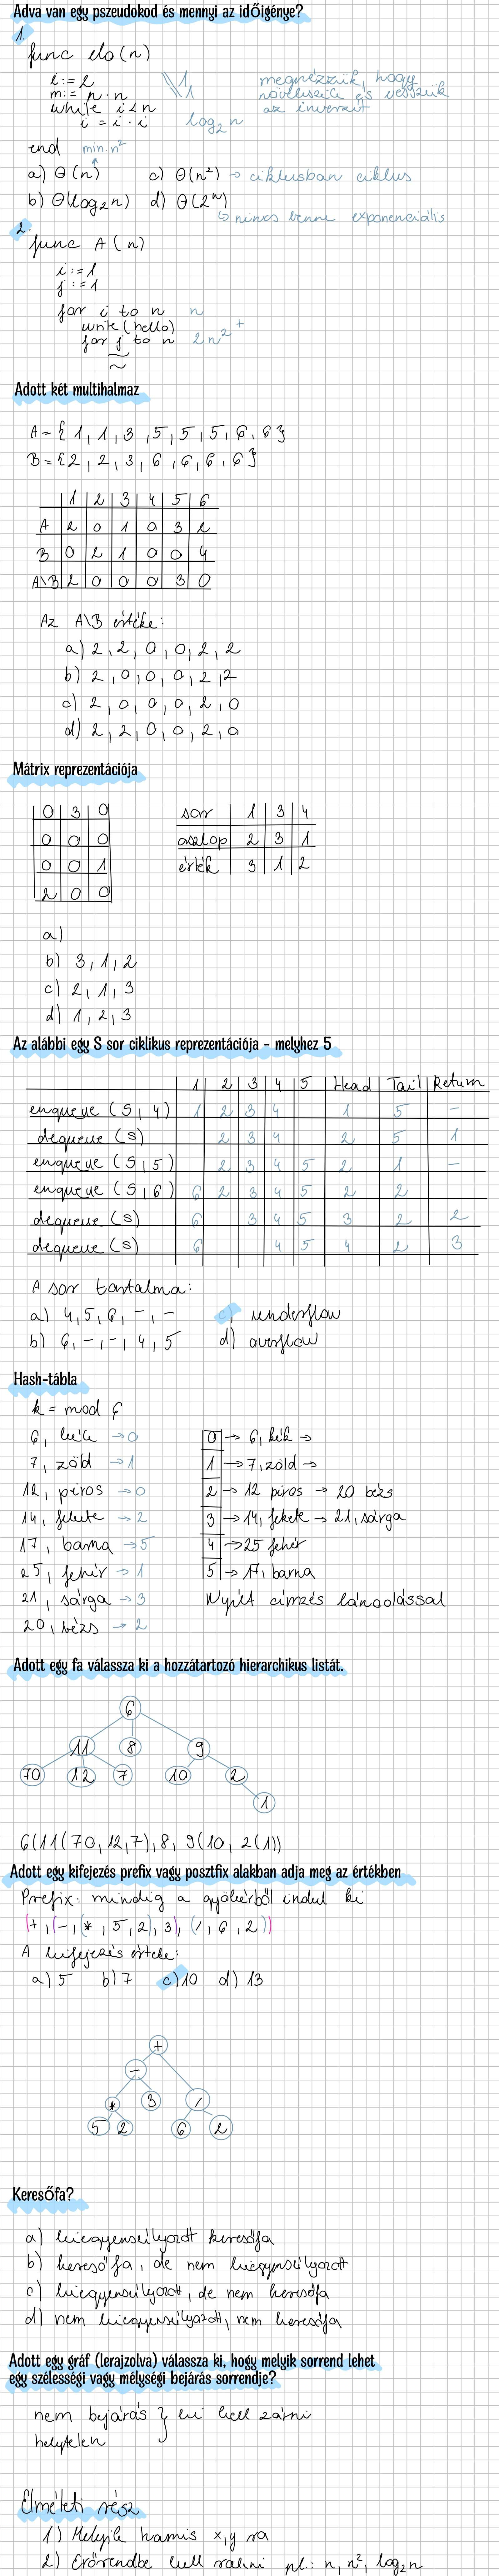 Adva van egy pszeudokod és mennyi az időigénye?
1.
func elo(n)
i := 2
m := n · n
while i < n
i = i · i
end
megnézzük, hogy
növekszik és vesszük
az inverzét
log₂ n
min. n²
a) Θ(n) c) Θ(n²) → ciklusban ciklus
b) Θ(log₂n) d) Θ(2ⁿ)
↳ nincs benne exponenciális
2.
func A(n)
i := 1
j := 1
for i to n n
write(hello)
for j to n 2n² +
Adott két multihalmaz
A = {1, 1, 3, 5, 5, 5, 6, 6}
B = {2, 2, 3, 6, 6, 6, 6}
1 2 3 4 5 6
A 2 0 1 0 3 2
B 0 2 1 0 0 4
A\B 2 0 0 0 3 0
Az A\B értéke:
a) 2, 2, 0, 0, 2, 2
b) 2, 0, 0, 0, 2, 2
c) 2, 0, 0, 0, 2, 0
d) 2, 2, 0, 0, 2, 0
Mátrix reprezentációja
0 3 0
0 0 0
0 0 1
2 0 0
sor 1 3 4
oszlop 2 3 1
érték 3 1 2
a)
b) 3, 1, 2
c) 2, 1, 3
d) 1, 2, 3
Az alábbi egy S sor ciklikus reprezentációja - melyhez 5
1 2 3 4 5 Head Tail Return
enqueue (S, 4) 1 2 3 4 1 5 -
dequeue (S) 2 3 4 2 5 1
enqueue (S, 5) 2 3 4 5 2 1 -
enqueue (S, 6) 6 2 3 4 5 2 2
dequeue (S) 6 3 4 5 3 2 2
dequeue (S) 6 4 5 4 2 3
A sor tartalma:
a) 4, 5, 6, -, - c) underflow
b) 6, -, -, 4, 5 d) overflow
Hash-tábla
k = mod 6
6, kék → 0
7, zöld → 1
12, piros → 0
14, fekete → 2
17, barna → 5
25, fehér → 1
21, sárga → 3
20, bézs → 2
0 → 6, kék →
1 → 7, zöld →
2 → 12 piros → 20 bézs
3 → 14, fekete → 21, sárga
4 → 25 fehér
5 → 17, barna
Nyílt címzés láncolással
Adott egy fa válassza ki a hozzátartozó hierarchikus listát.
6
11 8 9
70 12 7 10 2
1
6(11(70, 12, 7), 8, 9(10, 2(1))
Adott egy kifejezés prefix vagy posztfix alakban adja meg az értékben
Prefix: mindig a gyökérből indul ki
(+, (-, (*, 5, 2), 3), (/, 6, 2))
A kifejezés értéke:
a) 5 b) 7 c) 10 d) 13
+
-
* 3 /
5 2 6 2
Keresőfa?
a) kiegyensúlyozott keresőfa
b) kereső fa, de nem kiegyensúlyozott
c) kiegyensúlyozott, de nem keresőfa
d) nem kiegyensúlyozott, nem keresőfa
Adott egy gráf (lerajzolva) válassza ki, hogy melyik sorrend lehet
egy szélességi vagy mélységi bejárás sorrendje?
nem bejárás } ki kell zárni
helytelen
Elméleti rész
1) Melyik hamis x, y ra
2) Erőrendbe kell rakni pl.: n, n², log₂n